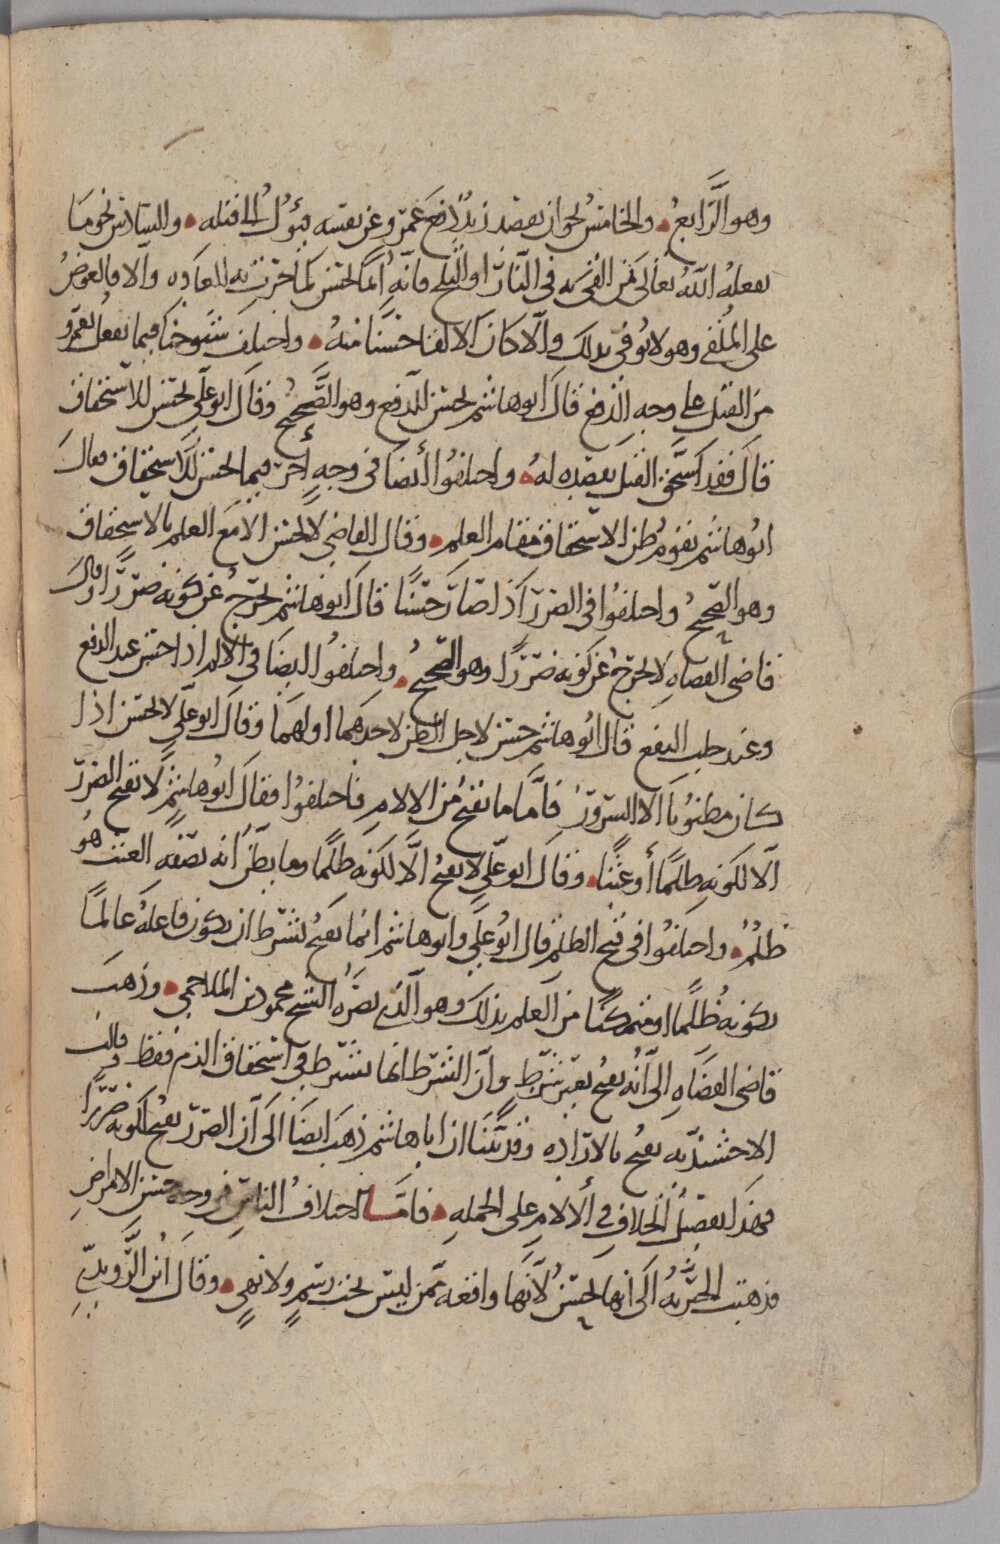 وهو الرابع والخامس نحو ان يقصد زيد دفع عمرو عن نفسه فيؤل الى قتله والسادس نحو ما
يفعله الله تعالى بمن القي به في النار او الثلج فانه انما يحسن لما جرت به العاده والا فالعوض
على الملقي وهو لا يوفي بذلك والا كان الالقا حسنا منه واختلف شيوخنا فيما يفعل بعمرو
من القتل على وجه الدفع قال ابو هاشم يحسن للدفع وهو الصحيح وقال ابو علي يحسن للاستحقاق
قال فقد استحق القتل بقصده له واختلفوا أيضا في وجه أخر فيما يحسن للاستحقاق فقال
ابو هاشم يقوم ظن الاستحقاق مقام العلم وقال القاضي لا يحسن الا مع العلم بالاستحقاق
وهو الصحيح واختلفوا في الضرر اذا صار حسنا قال ابو هاشم يخرج عن كونه ضررا وقال
قاضي القضاه لا يخرج عن كونه ضررا وهو الصحيح واختلفوا ايضا في الالم اذا حسن عند الدفع
وعند جلب النفع قال ابو هاشم حسن لاجل الظن لاحدهما او لهما وقال ابو علي لا يحسن اذا
كان مظنونا الا السرور فأما ما يقبح من الالام فاختلفوا فقال ابو هاشم لا يقبح الضرر
الا لكونه ظلما أو عبثا وقال ابو علي لا يقبح الا لكونه ظلما وما يظن انه بصفه العبث هو
ظلم واختلفوا في قبح الظلم قال ابو علي وابو هاشم انما يقبح بشرط ان يكون فاعله عالما
بكونه ظلما او متمكنا من العلم بذلك وهو الذي نصره الشيخ محمود بن الملاحمي وذهب
قاضي القضاه الى أنه يقبح بغير شرط وان الشرط انما يشترط في استحقاق الذم فقط وقالت
الاخشيديه يقبح بالاراده وقد بينا ان ابا هاشم ذهب ايضا الى ان الضرر يقبح لكونه ضررا
فهذا تفصيل الخلاف في ألالام على الجمله فأما اختلاف الناس في وجه حسن الامراض
فذهبت المجبره الى انها تحسن لانها واقعه ممن ليس تحت رسم ولا نهي وقال ابن الروندي